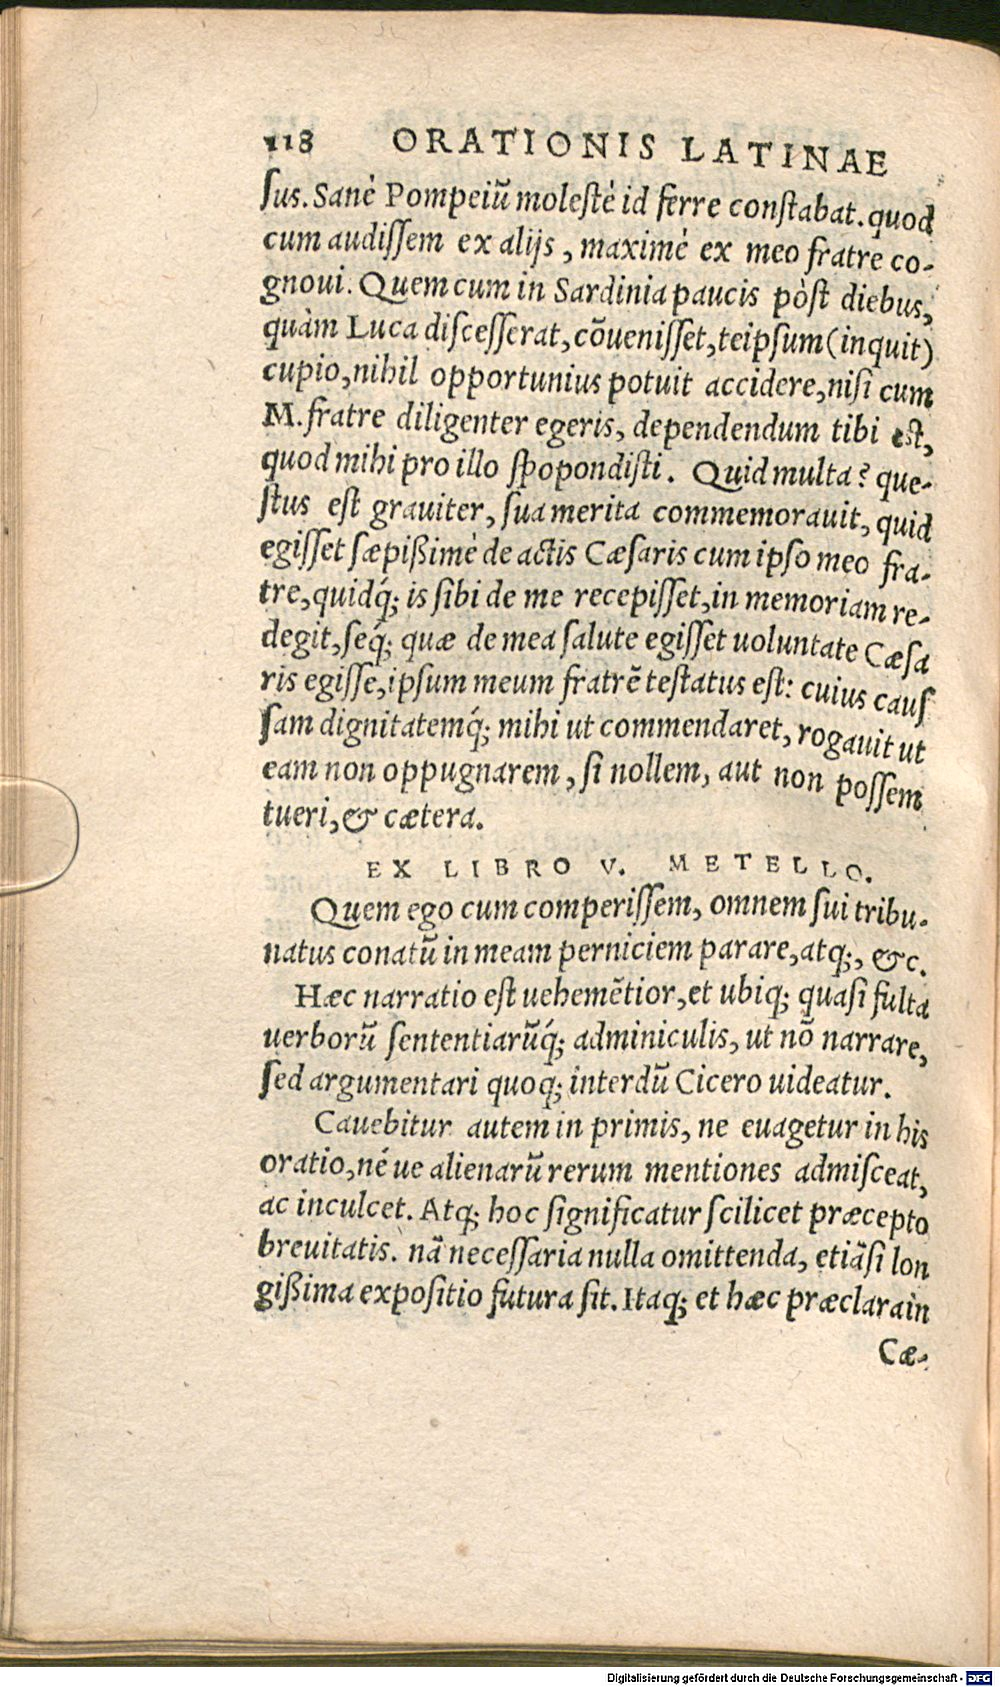 118 ORATIONIS LATINAE
ſus. Sanè Pompeiũ moleſtè id ferre conſtabat. quod
cum audiſſem ex alijs, maximè ex meo fratre co-
gnoui. Quem cum in Sardinia paucis pòſt diebus,
quàm Luca diſceſſerat, cõueniſſet, teipſum (inquit)
cupio, nihil opportunius potuit accidere, niſi cum
M. fratre diligenter egeris, dependendum tibi eſt,
quod mihi pro illo ſpopondiſti. Quid multa? que-
ſtus eſt grauiter, ſua merita commemorauit, quid
egiſſet ſæpißimè de actis Cæſaris cum ipſo meo fra-
tre, quidq́; is ſibi de me recepiſſet, in memoriam re-
degit, ſeq́; quæ de mea ſalute egiſſet uoluntate Cæſa
ris egiſſe, ipſum meum fratrẽ teſtatus eſt: cuius cauſ
ſam dignitatemq́; mihi ut commendaret, rogauit ut
eam non oppugnarem, ſi nollem, aut non poſſem
tueri, & cætera.
EX LIBRO V. METELLO.
Quem ego cum comperiſſem, omnem ſui tribu-
natus conatũ in meam perniciem parare, atq;, &c.
Hæc narratio eſt uehemẽtior, et ubiq; quaſi fulta
uerborũ ſententiarũq́; adminiculis, ut nõ narrare,
ſed argumentari quoq; interdũ Cicero uideatur.
Cauebitur autem in primis, ne euagetur in his
oratio, né ue alienarũ rerum mentiones admiſceat,
ac inculcet. Atq; hoc ſignificatur ſcilicet præcepto
breuitatis. nã neceſſaria nulla omittenda, etiãſi lon
gißima expoſitio futura ſit. Itaq; et hæc præclara in
Cæ-
Digitalisierung gefördert durch die Deutsche Forschungsgemeinschaft - DFG